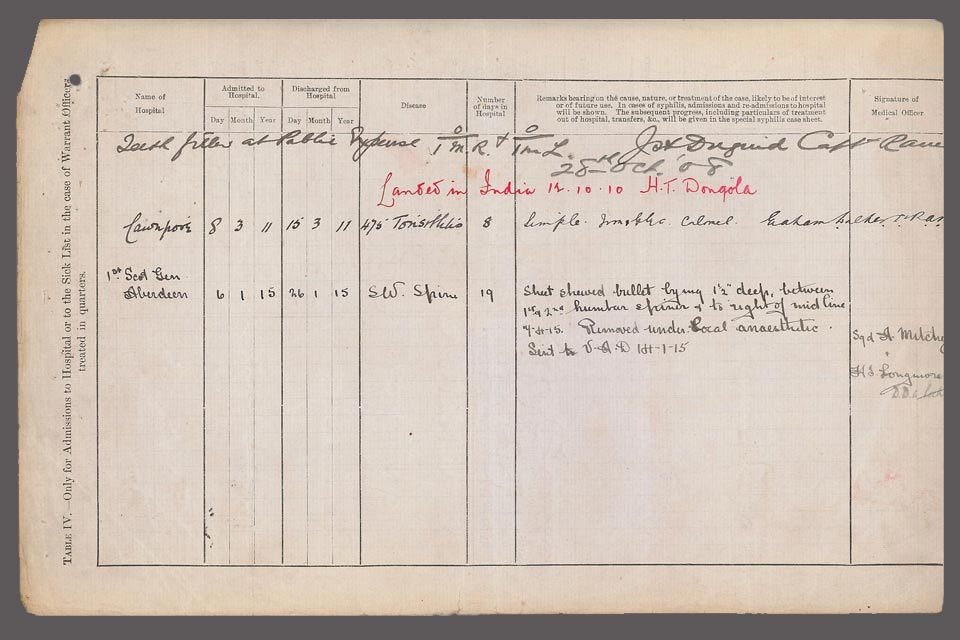 TABLE IV.—Only for Admissions to Hospital or to the Sick List in the case of Warrant Officers
treated in quarters.
Name of
Hospital
Admitted to
Hospital.
Day Month Year
Discharged from
Hospital
Day Month Year
Disease
Number
of days in
Hospital
Remarks bearing on the cause, nature, or treatment of the case, likely to be of interest
or of future use. In cases of syphilis, admissions and re-admissions to hospital
will be shown. The subsequent progress, including particulars of treatment
out of hospital, transfers, &c., will be given in the special syphilis case sheet.
Signature of
Medical Officer
Teeth at Public Expense
Capt
28th Oct. '08
Landed in India 12.10.10 H.T. Dongola
Cawnpore 8 3 11 15 3 11 Tonsillitis 8 Simple. Graham
1st Scot Gen
Aberdeen 6 1 15 26 1 15 S.W. Spine 19 bullet 1½" deep, between
1st & 2nd & to right of mid line
Removed under local anaesthetic.
Sent to V.A.D
Sgd A.
H.J. Longmore